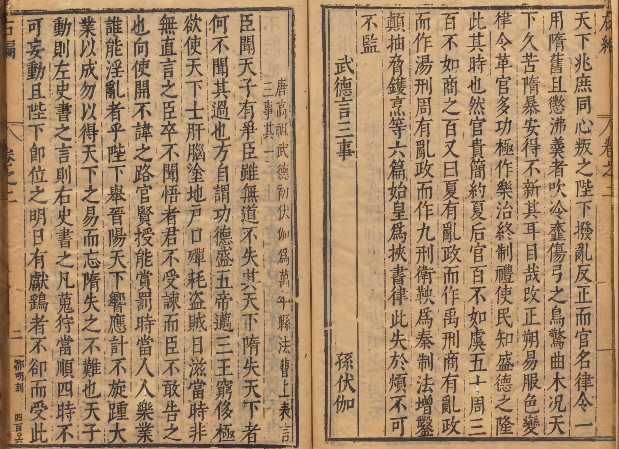 卷之二
天下兆庶同心叛之陛下撥亂反正而官名律令一
用隋舊且懲沸羹者吹冷齏傷弓之鳥驚曲木况天
下久苦隋暴安得不新其耳目哉改正朔易服色變
律令革官名功極作樂治終制禮使民知盛德之隆
此其時也然官貴簡約夏后官百不如虞五十周三
百不如商之百又曰夏有亂政而作禹刑商有亂政
而作湯刑周有亂政而作九刑衛鞅爲秦制法增鑿
顛抽脅鑊烹等六篇始皇爲挾書律此失於煩不可
不監
武德言三事
孫伏伽
唐高祖武德初伏伽爲萬年縣法曹上表言
三事其一
臣聞天子有爭臣雖無道不失其天下隋失天下者
何不聞其過也方自謂功德盛五帝邁三王窮侈極
欲使天下士肝腦塗地戶口殫耗盗賊日滋當時非
無直言之臣卒不聞悟者君不受諫而臣不敢告之
也向使開不諱之路官賢授能賞罰時當人人樂業
誰能淫亂者乎陛下舉晉陽天下響應計不旋踵大
業以成勿以得天下之易而忘隋失之不難也天子
動則左史書之言則右史書之凡蒐狩當順四時不
可妄動且陛下即位之明日有獻鷂者不卻而受此
右編
卷之二
二
四百六